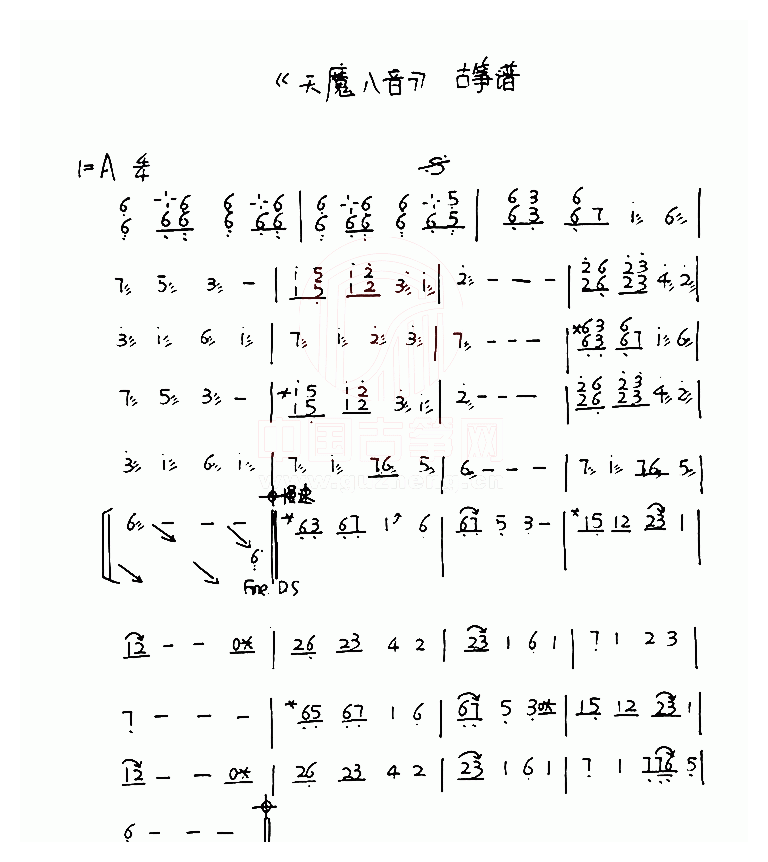 《天魔八音》 古筝谱
1=A 4/4
6 6 6 6 | 6 6 6 5 | 6 3 6
6 66 6 66 | 6 66 6 65 | 63 67 i 6 |
7 5 3 - | i5 i2 3 i | 2 - - - | 26 23 4 2 |
3 i 6 i | 7 i 2 3 | 7 - - - | *63 67 i 6 |
7 5 3 - | *i5 i2 3 i | 2 - - - | 26 23 4 2 |
3 i 6 i | 7 i 76 5 | 6 - - - | 7 i 76 5 |
慢速
6 - - - | *63 67 1 6 | 67 5 3 - | *15 12 23 1 |
6
Fine D.S
12 - - 0* | 26 23 4 2 | 23 1 6 1 | 7 1 2 3 |
7 - - - | *65 67 1 6 | 67 5 30* | 15 12 23 1 |
12 - - 0* | 26 23 4 2 | 23 1 6 1 | 7 1 776 5 |
6 - - -
中国古筝网